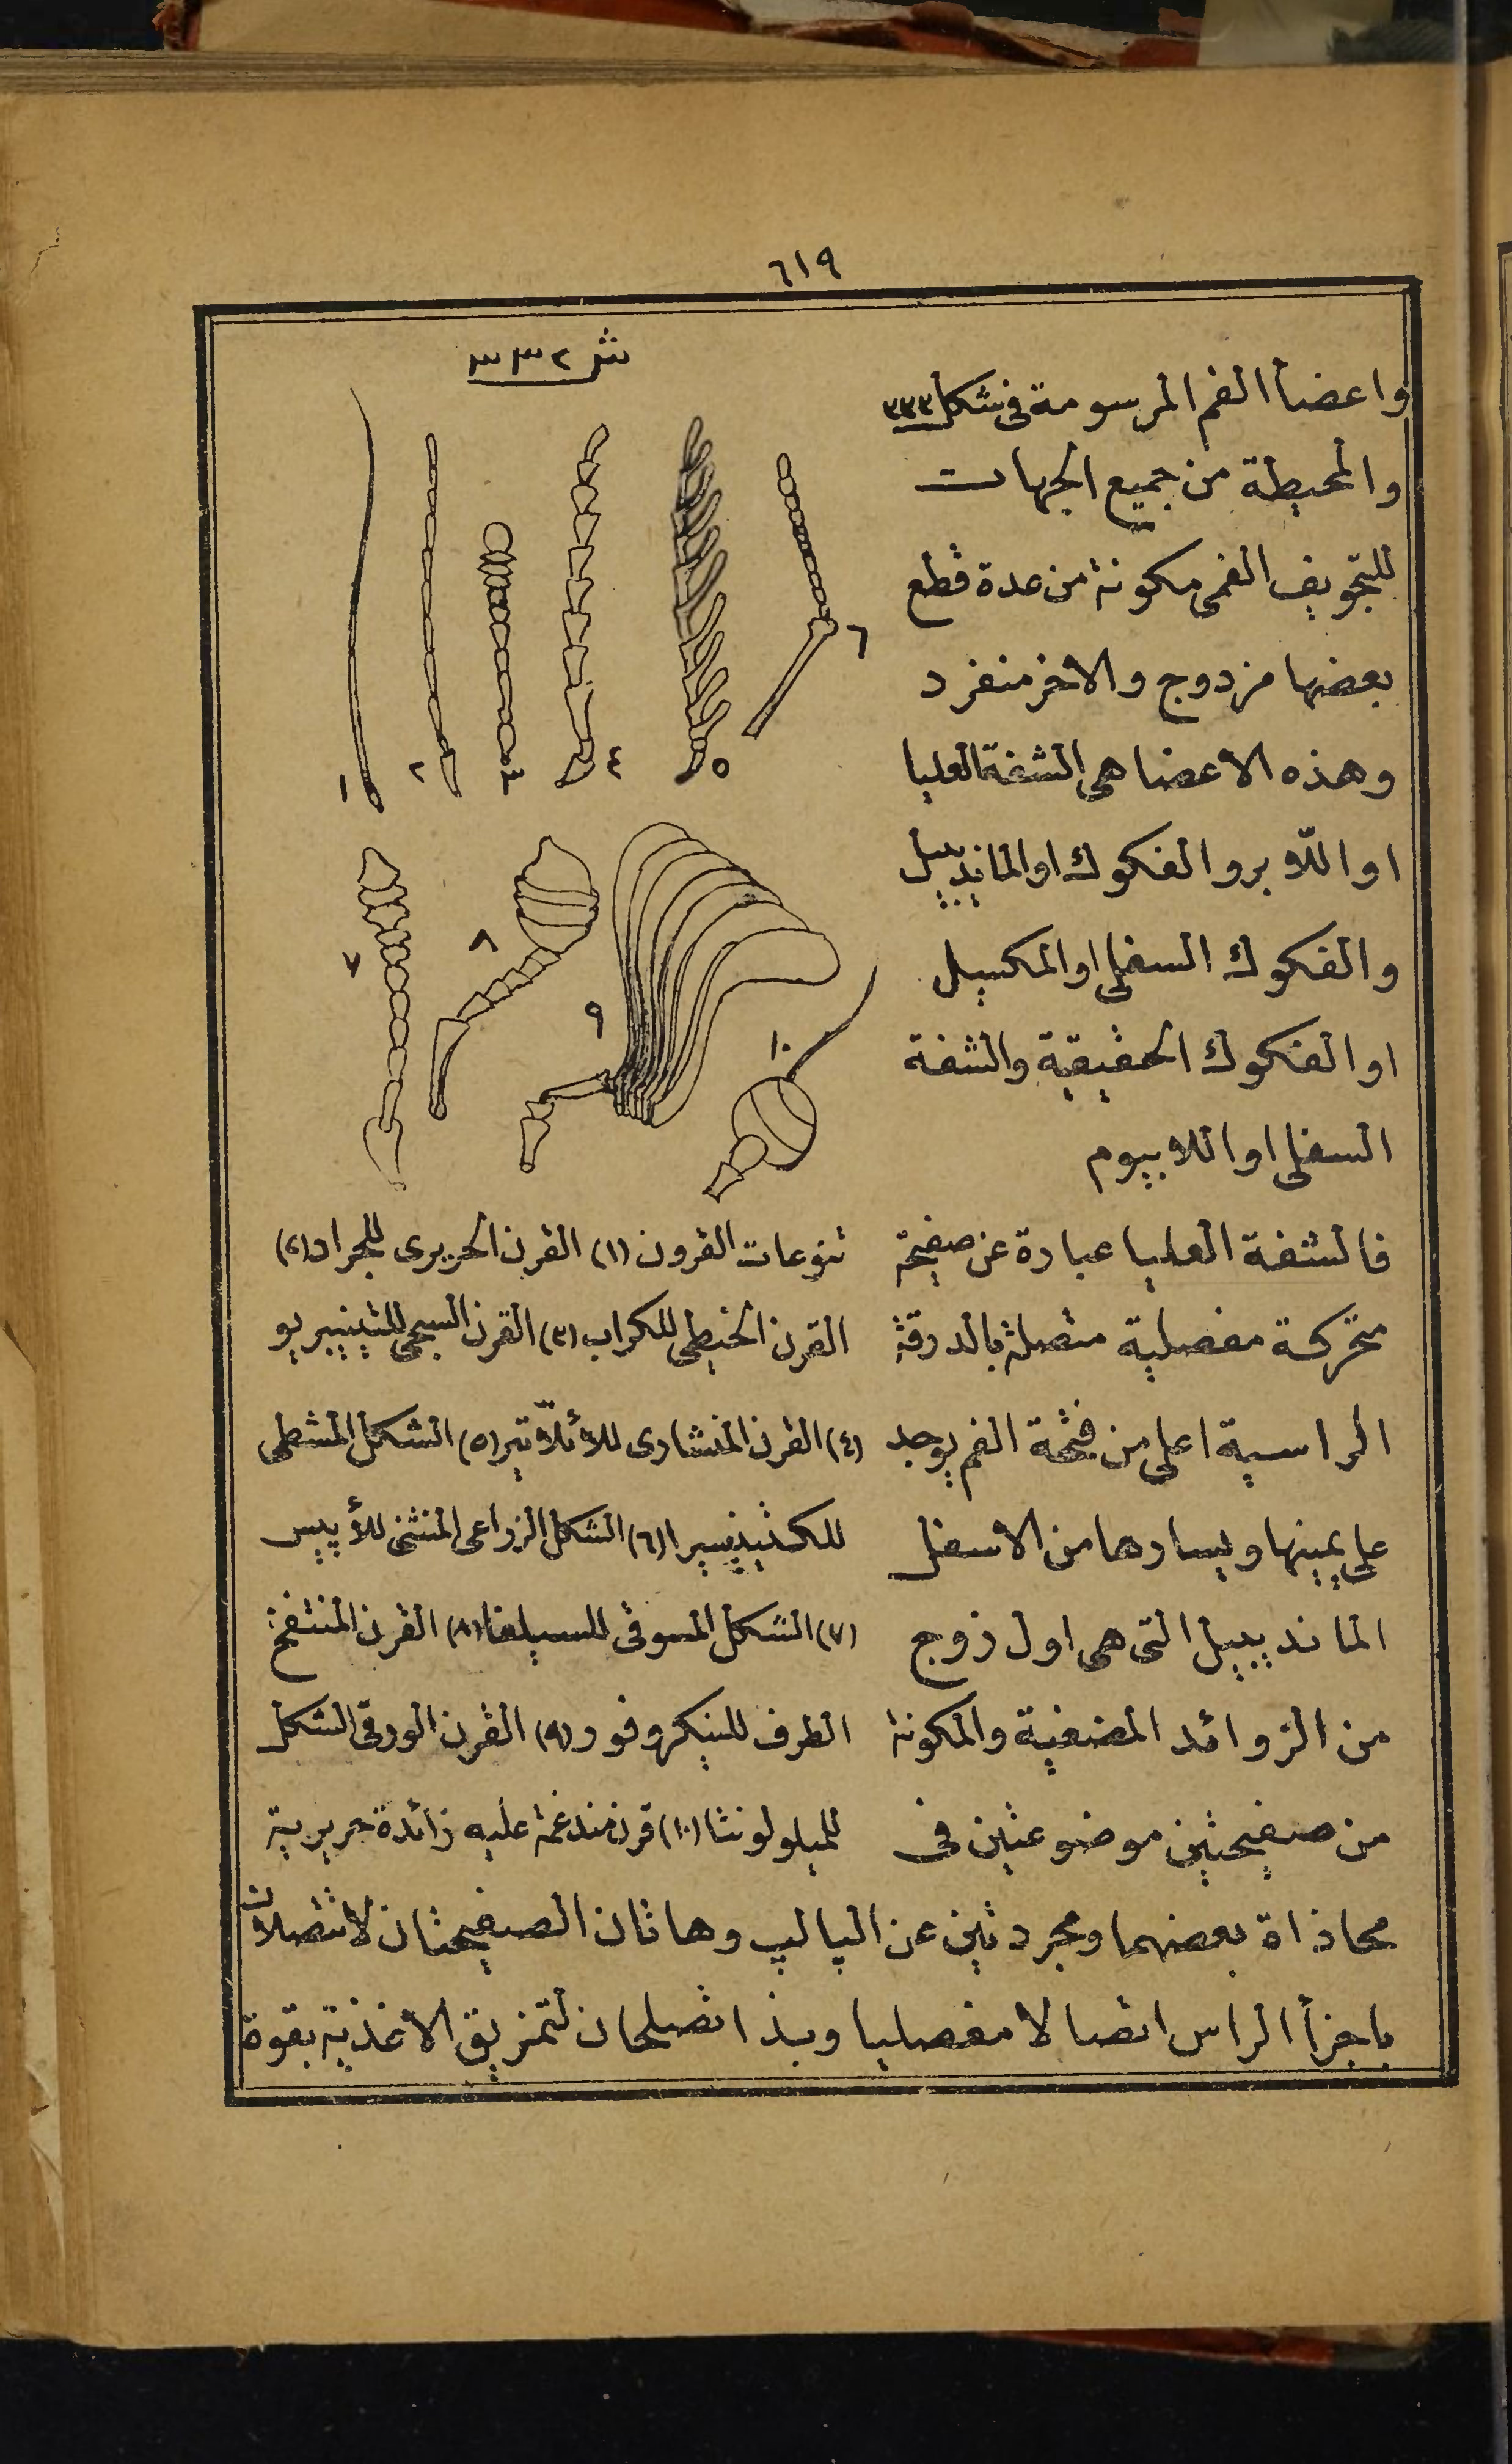 ٦١٩
واعضأ الفم المرسومة فى شكل ٣٣٣
والمحيطة من جميع الجهات
للتجويف الفمى مكونة من عدة قطع
بعضها مزدوج والاخر منفرد
وهذه الاعضا هى الشفة العليا
او اللابرو الفكوك او الماندييبل
والفكوك السفلى او المكسيل
او الفكوك الحقيقية والشفة
السفلى او اللابيوم
فالشفة العليا عبارة عن صفيحة
متحركة مفصلية متصلة بالدرقة
الراسية اعلى من فتحة الفم يوجد
على يمينها ويسارها من الاسفل
الماندييبل التى هى اول زوج
من الزوائد المضغية والمكونة
من صفيحتين موضوعتين فى
ش ٣٣٢
١
٢
٣
٤
٥
٦
٧
٨
٩
١٠
تنوعات القرون (١) القرن الحريرى للجراد (٢)
القرن الخيطى للكراب (٣) القرن السبحى للتينيبريو
(٤) القرن المنشارى للأئلاتير (٥) الشكل المشطى
للكتينيسيرا (٦) الشكل الزراعى المنثنى للأپيس
(٧) الشكل المسوقى للسيلفا (٨) القرن المنتفخ
الطرف للنيكروفور (٩) القرن الورقى الشكل
للميلولونتا (١٠) قرن مندغمة عليه زائدة حريرية
محاذاة بعضهما ومجردتين عن الپالپ وهاتان الصفيحتان لاتتصلان
باجزأ الراس اتصالا مفصليا وبذا تصلحان لتمزيق الاغذية بقوة